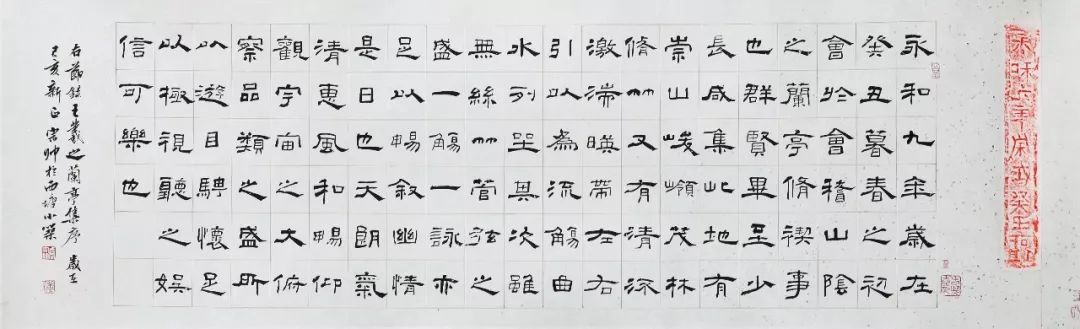 永和九年歲在
癸丑暮春之初
會於會稽山陰
之蘭亭脩禊事
也群賢畢至少
長咸集此地有
崇山峻嶺茂林
脩竹又有清流
激湍暎帶左右
引以為流觴曲
水列坐其次雖
無絲竹管弦之
盛一觴一詠亦
足以暢敘幽情
是日也天朗氣
清惠風和暢仰
觀宇宙之大俯
察品類之盛所
以遊目騁懷足
以極視聽之娛
信可樂也
右節錄王羲之蘭亭集序 歲在
己亥新正 帥於西塘小築
永和六年